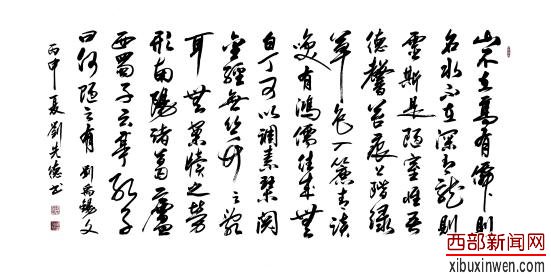 山不在高有仙则
名水不在深有龙则
灵斯是陋室惟吾
德馨苔痕上阶绿
草色入帘青谈
笑有鸿儒往来无
白丁可以调素琴阅
金经无丝竹之乱
耳无案牍之劳
形南阳诸葛庐
西蜀子云亭孔子
曰何陋之有 刘禹锡文
丙申夏刘先德书
西部新闻网
xibuxinwen.com